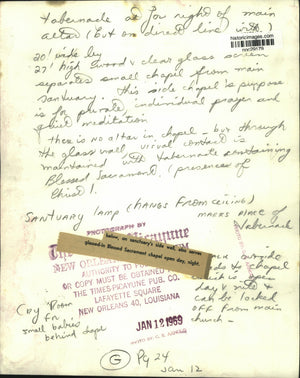 tabernacle at far right of main
altar (but on direct line with.)
historicimages.com
20' wide by
27' high wood & clear glass screen
separates small chapel from main
sanctuary. This side chapel's purpose
is for private individual prayer and
quiet meditation
There is no altar in chapel - but through
the glass wall visual contact is
maintained with tabernacle containing
Blessed Sacrament, (presence of
Christ).
SANCTUARY LAMP (HANGS FROM CEILING)
MARKS PLACE OF
TABERNACLE
PHOTOGRAPH BY
The Times-Picayune
NEW ORLEANS
on sanctuary's side wall
glassed-in Blessed Sacrament chapel open day, night.
AUTHORITY TO
OR COPY MUST BE OBTAINED
THE TIMES-PICAYUNE PUB. CO.
LAFAYETTE SQUARE
NEW ORLEANS 40, LOUISIANA
outside
to chapel
day & nite &
can be locked
off from main
church -
Cry Room
for
small babies
behind chapel
JAN 12 1969
G Pg 24
Jan 12